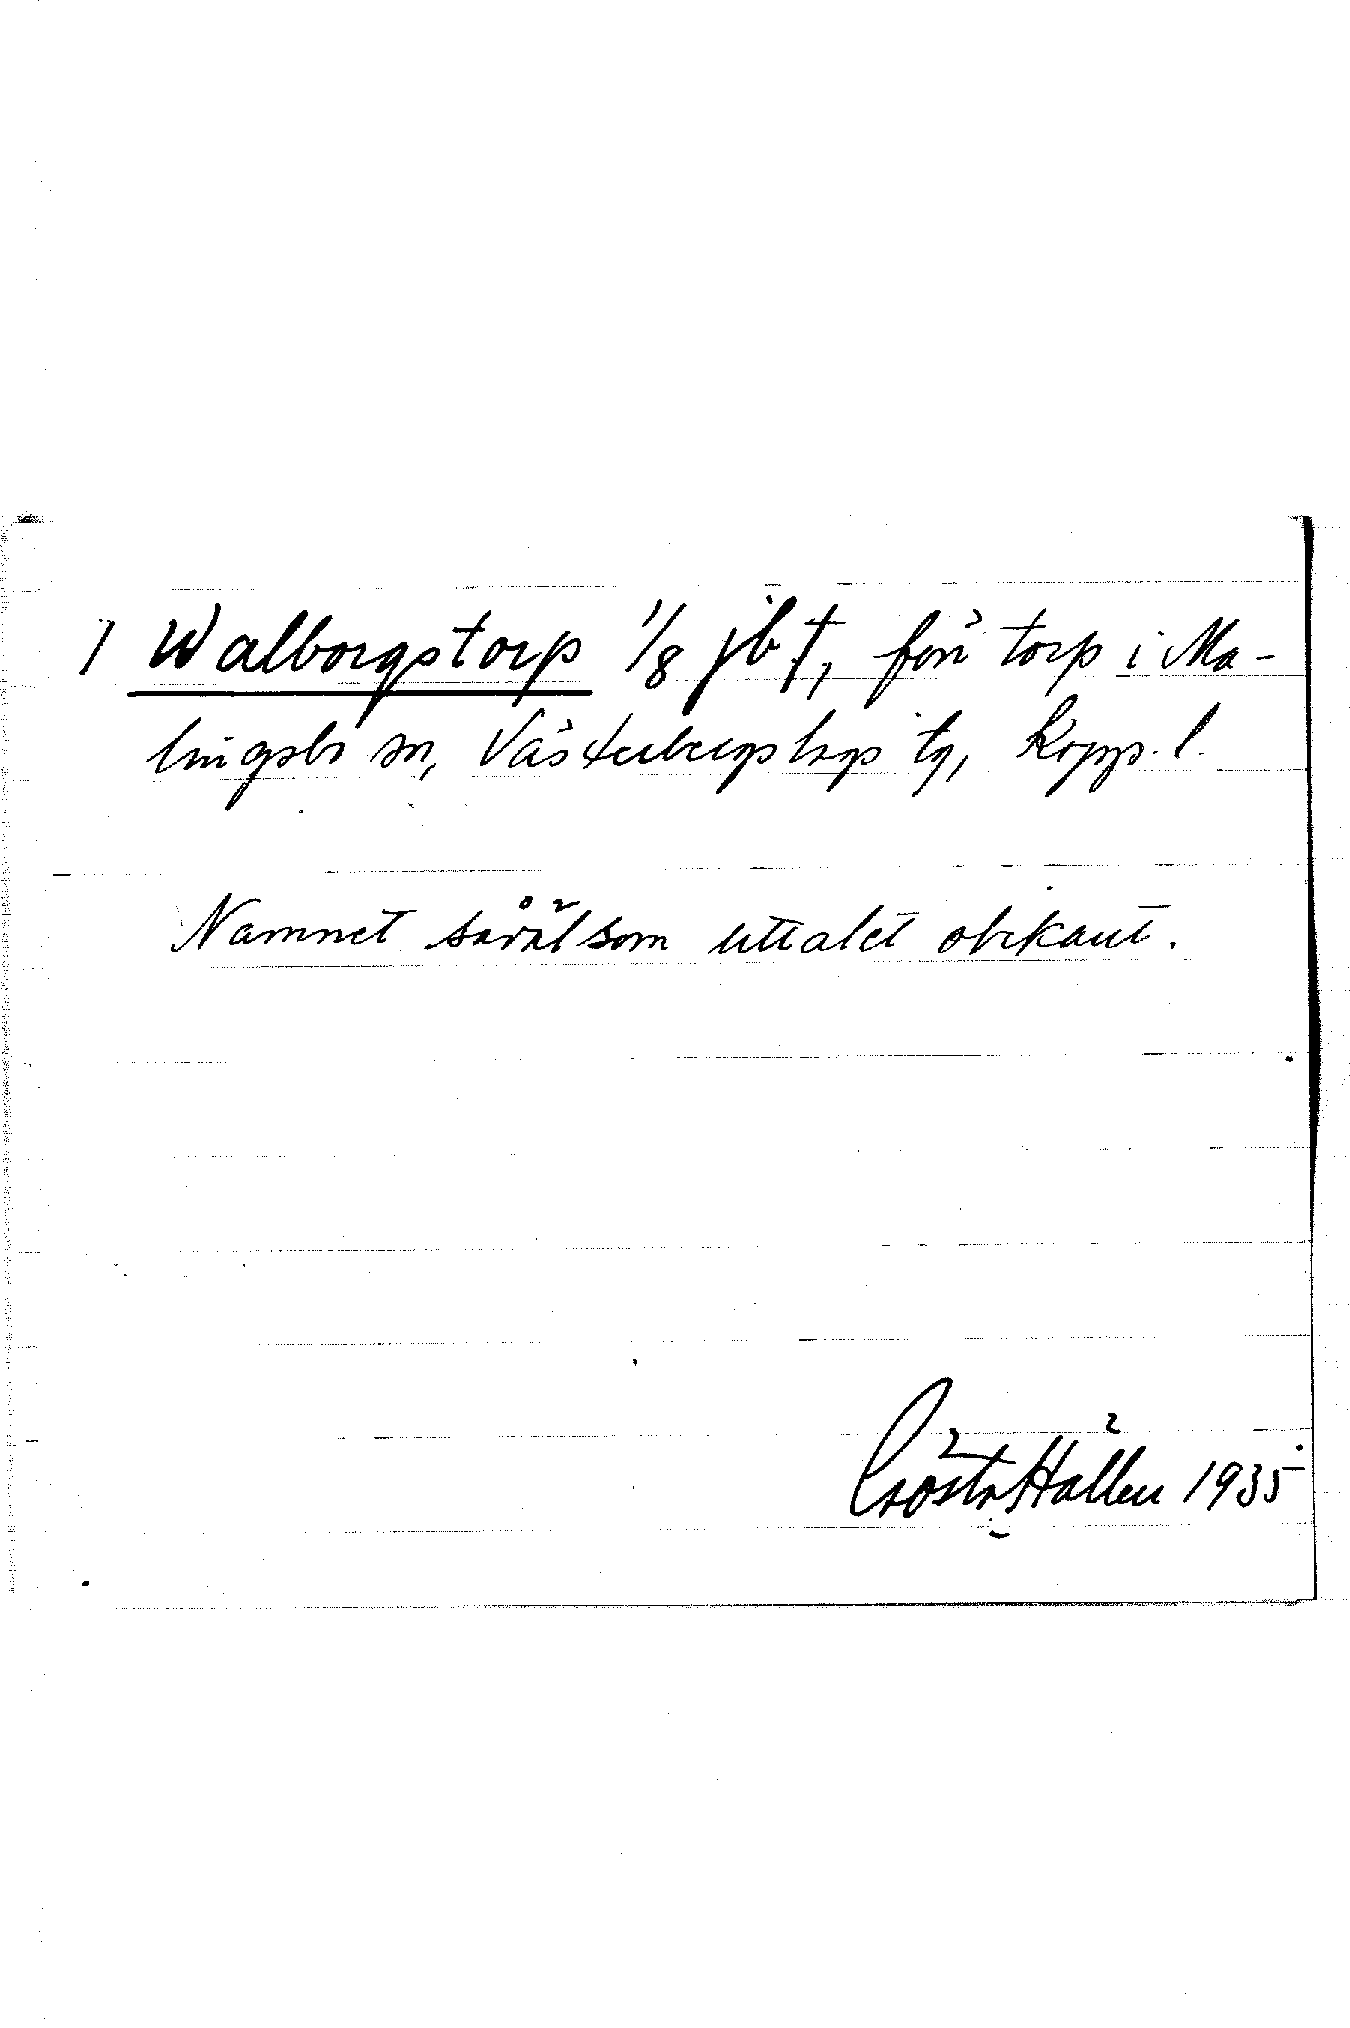 1 Walborgstorp 1/8 jb †, förr torp i Ma-
lingsbo sn, Västerbergslags tg, Kopp. l.
Namnet såväl som uttalet obekant.
Gösta Hallén 1935